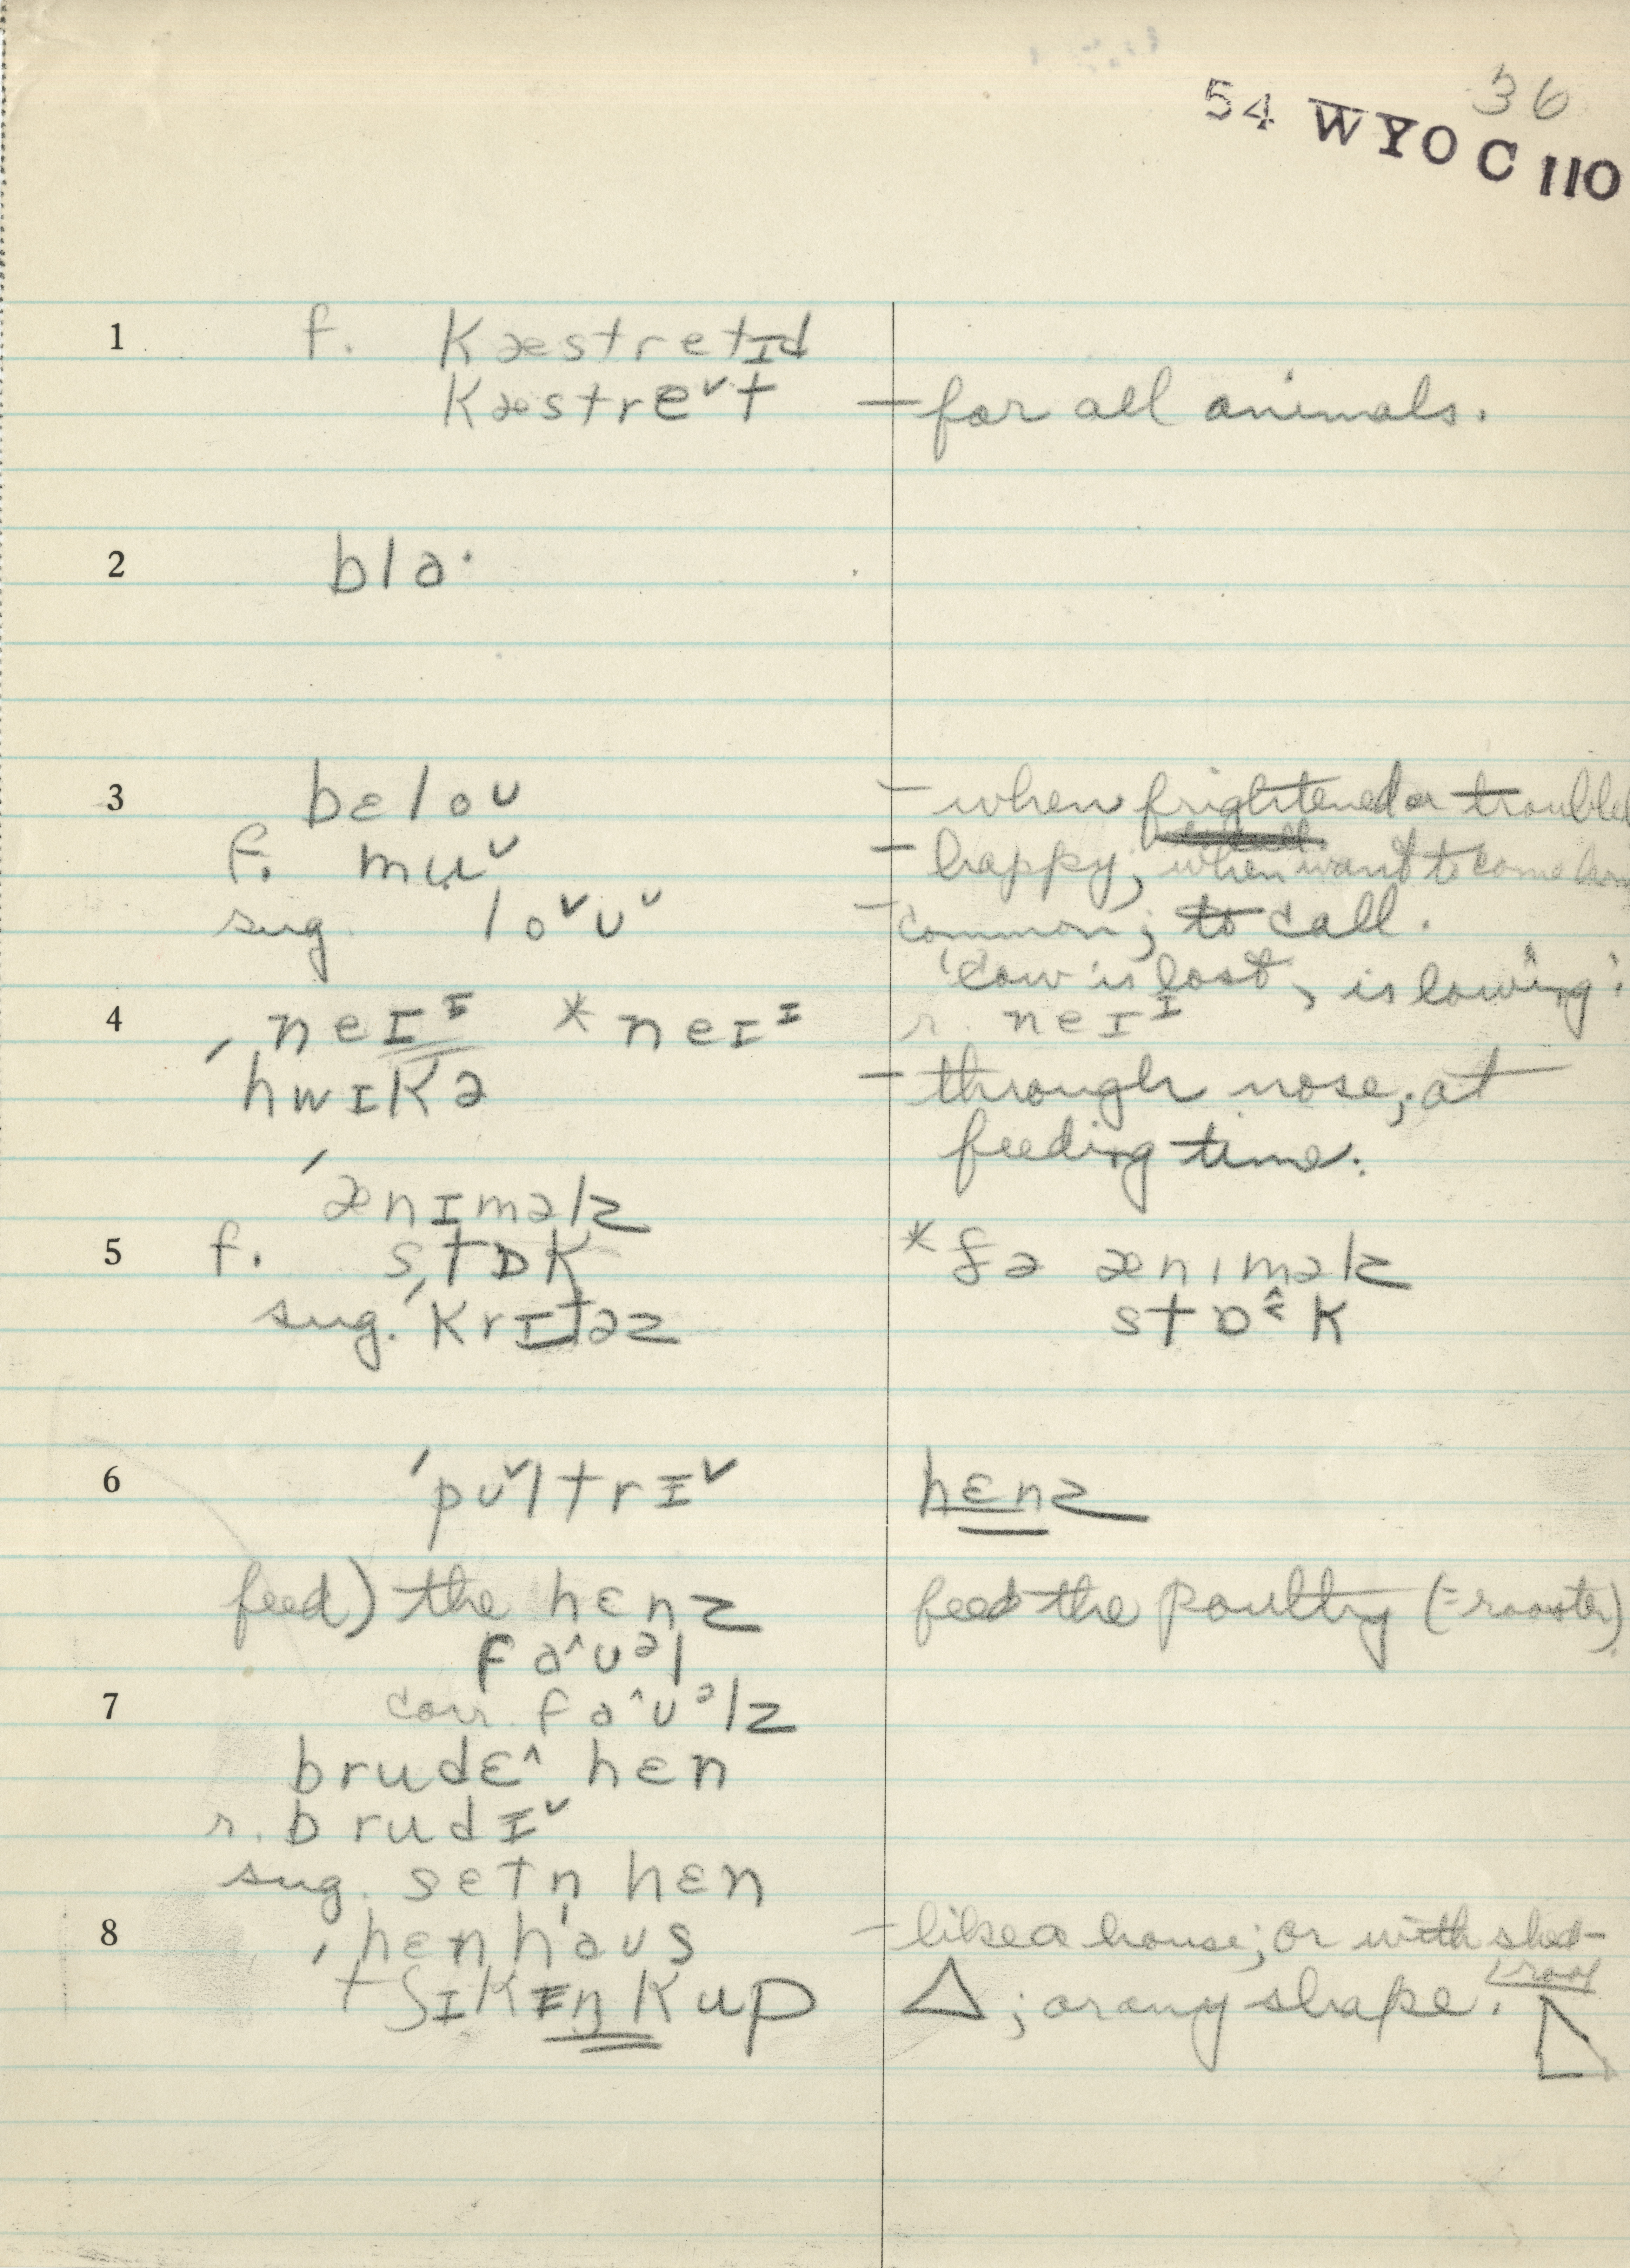 36
54 WYO C 110
1 f. Kæstretɪd
Kæstreˇt — for all animals.
2 bla·
3 bɛloᴜ — when frightened or troubled
f. muᵛ — happy; when want to come hom
sug. loˇᴜᵛ — common; to call.
'cow is lost, is lowing'.
4 ˈneɪᶦ *neɪᶦ r. neɪᶦ
ˈhwɪKə — through nose; at
feeding time.
ˈænɪməlz
5 f. stɒK *ðə ænɪməlz
sug. ˈKrɪtəz stɒᵋ̂K
6 ˈpᴜˇltrɪˇ hɛnz
feed) the hɛnz feed the poultry (= rooster)
faˆᴜᵊl
7 corr. faˆᴜᵊlz
brudɛˆ hɛn
r. brudɪˇ
sug. sɛtn̩ hɛn
8 ˈhɛnhaᴜs — like a house; or with shed-
roof
ˈtʃɪKɪŋKup △; or any shape.